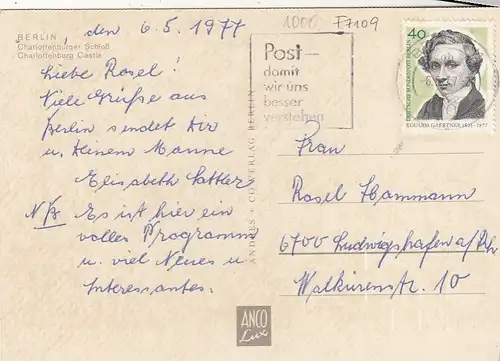 BERLIN
Charlottenburger Schloß
Charlottenburg Castle
, den 6.5.1977
Liebe Rosel!
Viele Grüße aus
Berlin sendet Dir
u. Deinem Manne
Elisabeth Sattler
NB. Es ist hier ein
volles Programm
u. viel Neues u.
Interessantes.
1000
F7109
Post-
damit
wir uns
besser
verstehen
40
DEUTSCHE BUNDESPOST BERLIN
EDUARD GAERTNER 1801-1877
ANDRES + CO VERLAG BERLIN
ANCO
Lux
Frau
Rosel Hammann
6700 Ludwigshafen a/Rh
Walkürenstr. 10